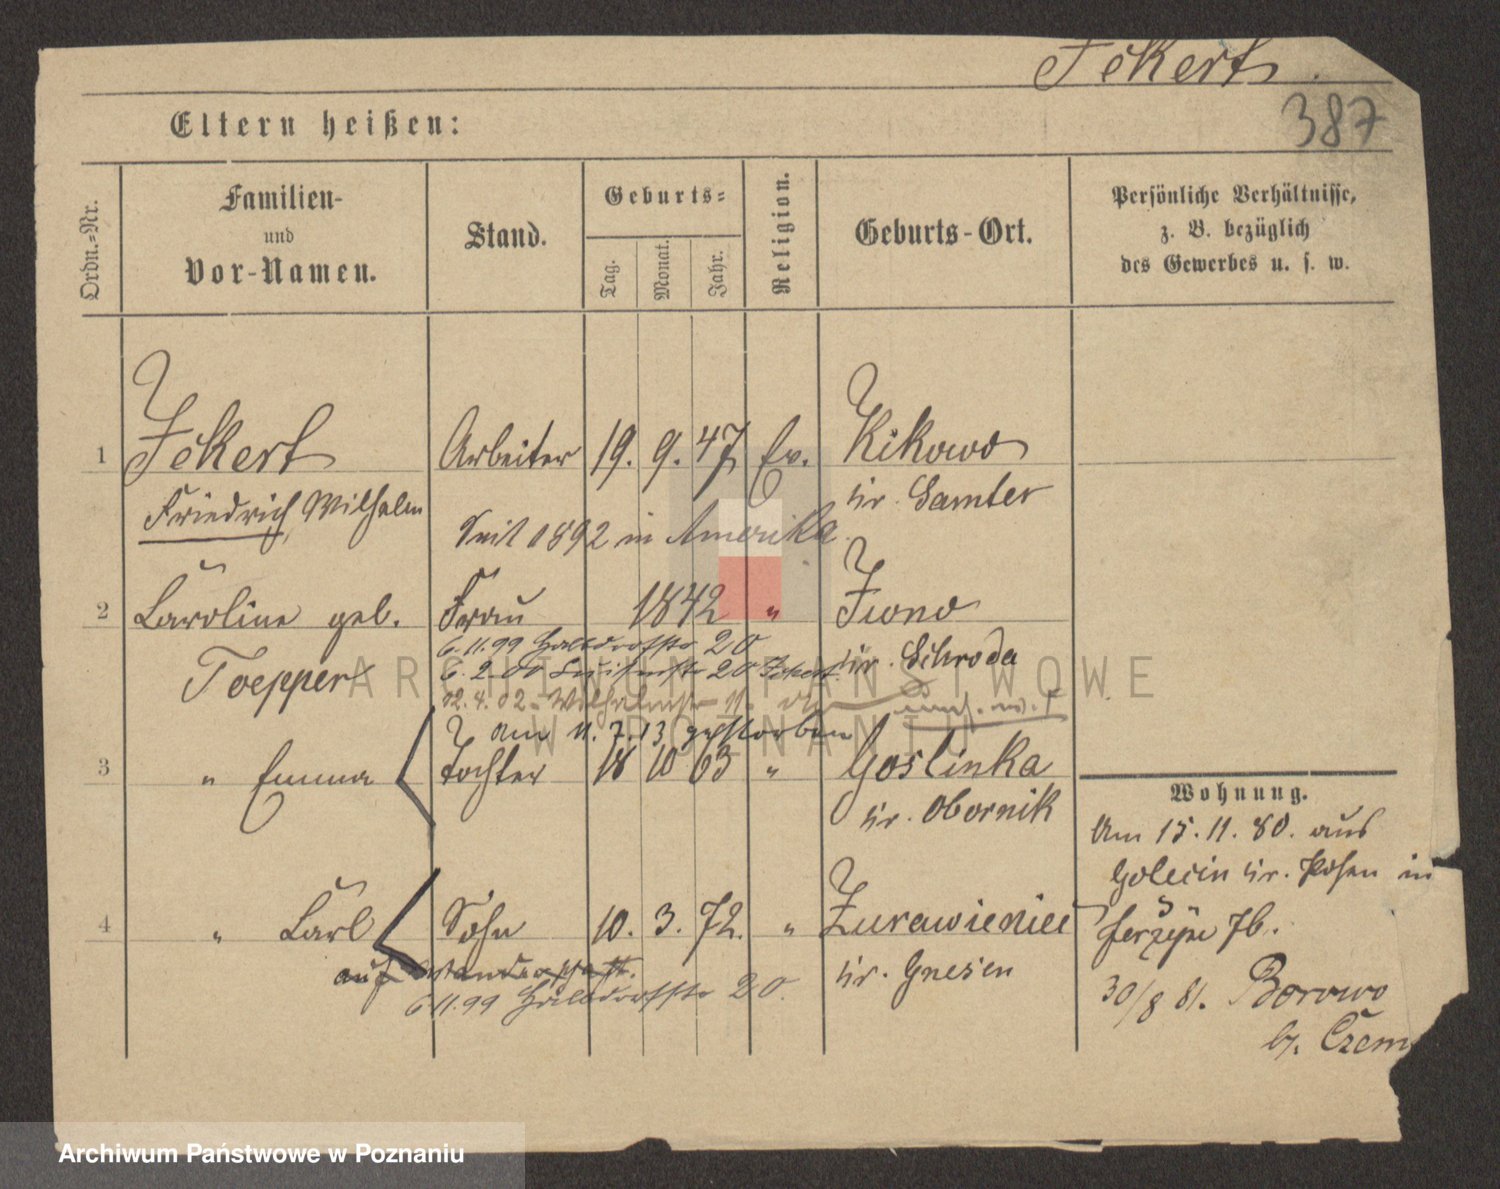 Jekert.
387
Eltern heißen:
Ordn.-Nr.
Familien-
und
Vor-Namen.
Stand.
Geburts-
Tag.
Monat.
Jahr.
Religion.
Geburts-Ort.
Persönliche Verhältnisse,
z. B. bezüglich
des Gewerbes u. s. w.
1 Jekert Arbeiter 19. 9. 47 Ev. Kikowo
Friedrich Wilhelm Kr. Samter
Seit 1892 in Amerika
2 Caroline geb. Frau 1842 " Iwno
6.11.99 Halbdorfstr 20
Toepper Kr. Schroda
6. 2. 00 Louisenstr 20 Jekert
12. 4. 02. Wilhelmstr 11.
am 11. 7. 13 gestorben
3 " Emma Tochter 18 10 63 " Goslinka
Kr. Obornik
Wohnung.
Am 15. 11. 80. aus
Golecin Kr. Posen in
Jerzyce 7b.
30/8 81. Borowo
b. Czem
4 " Carl Sohn 10. 3. 72. " Zurawieniec
auf Wanderschaft.
Kr. Gnesen
6.11.99 Halbdorfstr 20.
ARCHIWUM PAŃSTWOWE
W POZNANIU
Archiwum Państwowe w Poznaniu